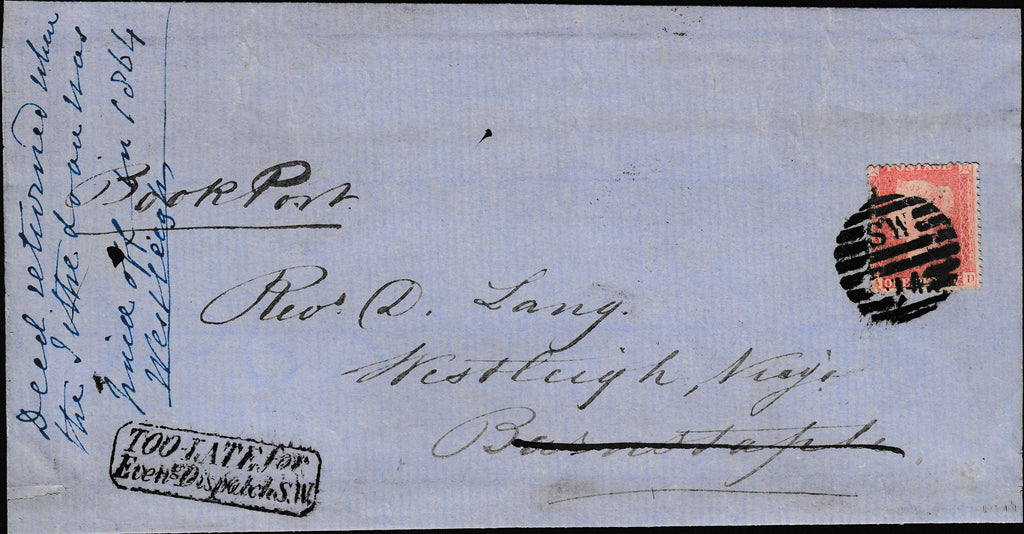 Deed returned when
the Tithe
price off in 1864
Westleigh
Book Post
Revd. D. Lang.
Westleigh,
Barnstaple
TOO-LATE for
Eveng Dispatch S.W.
SW
D